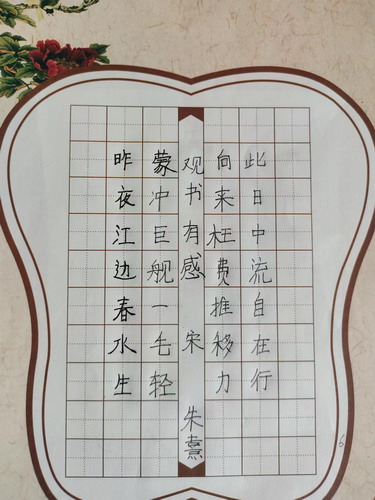 观书有感 宋 朱熹
昨夜江边春水生
蒙冲巨舰一毛轻
向来枉费推移力
此日中流自在行
6